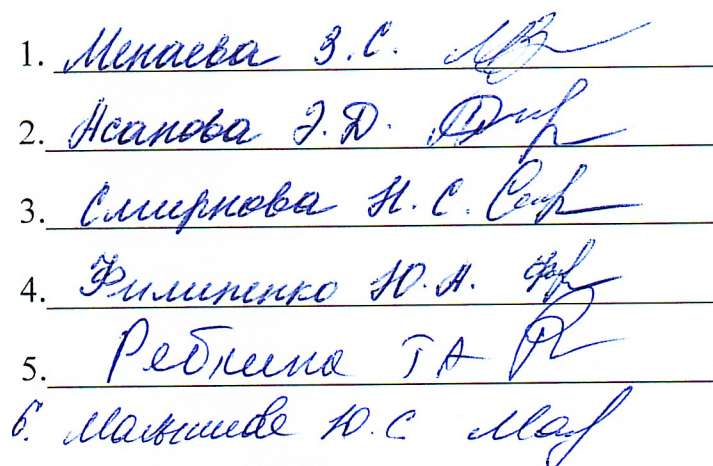 1. Менаева З.С.
2. Асанова Э.Д.
3. Смирнова Н.С.
4. Филипенко Ю.А.
5. Ребкина Т А
6. Малышева Ю.С